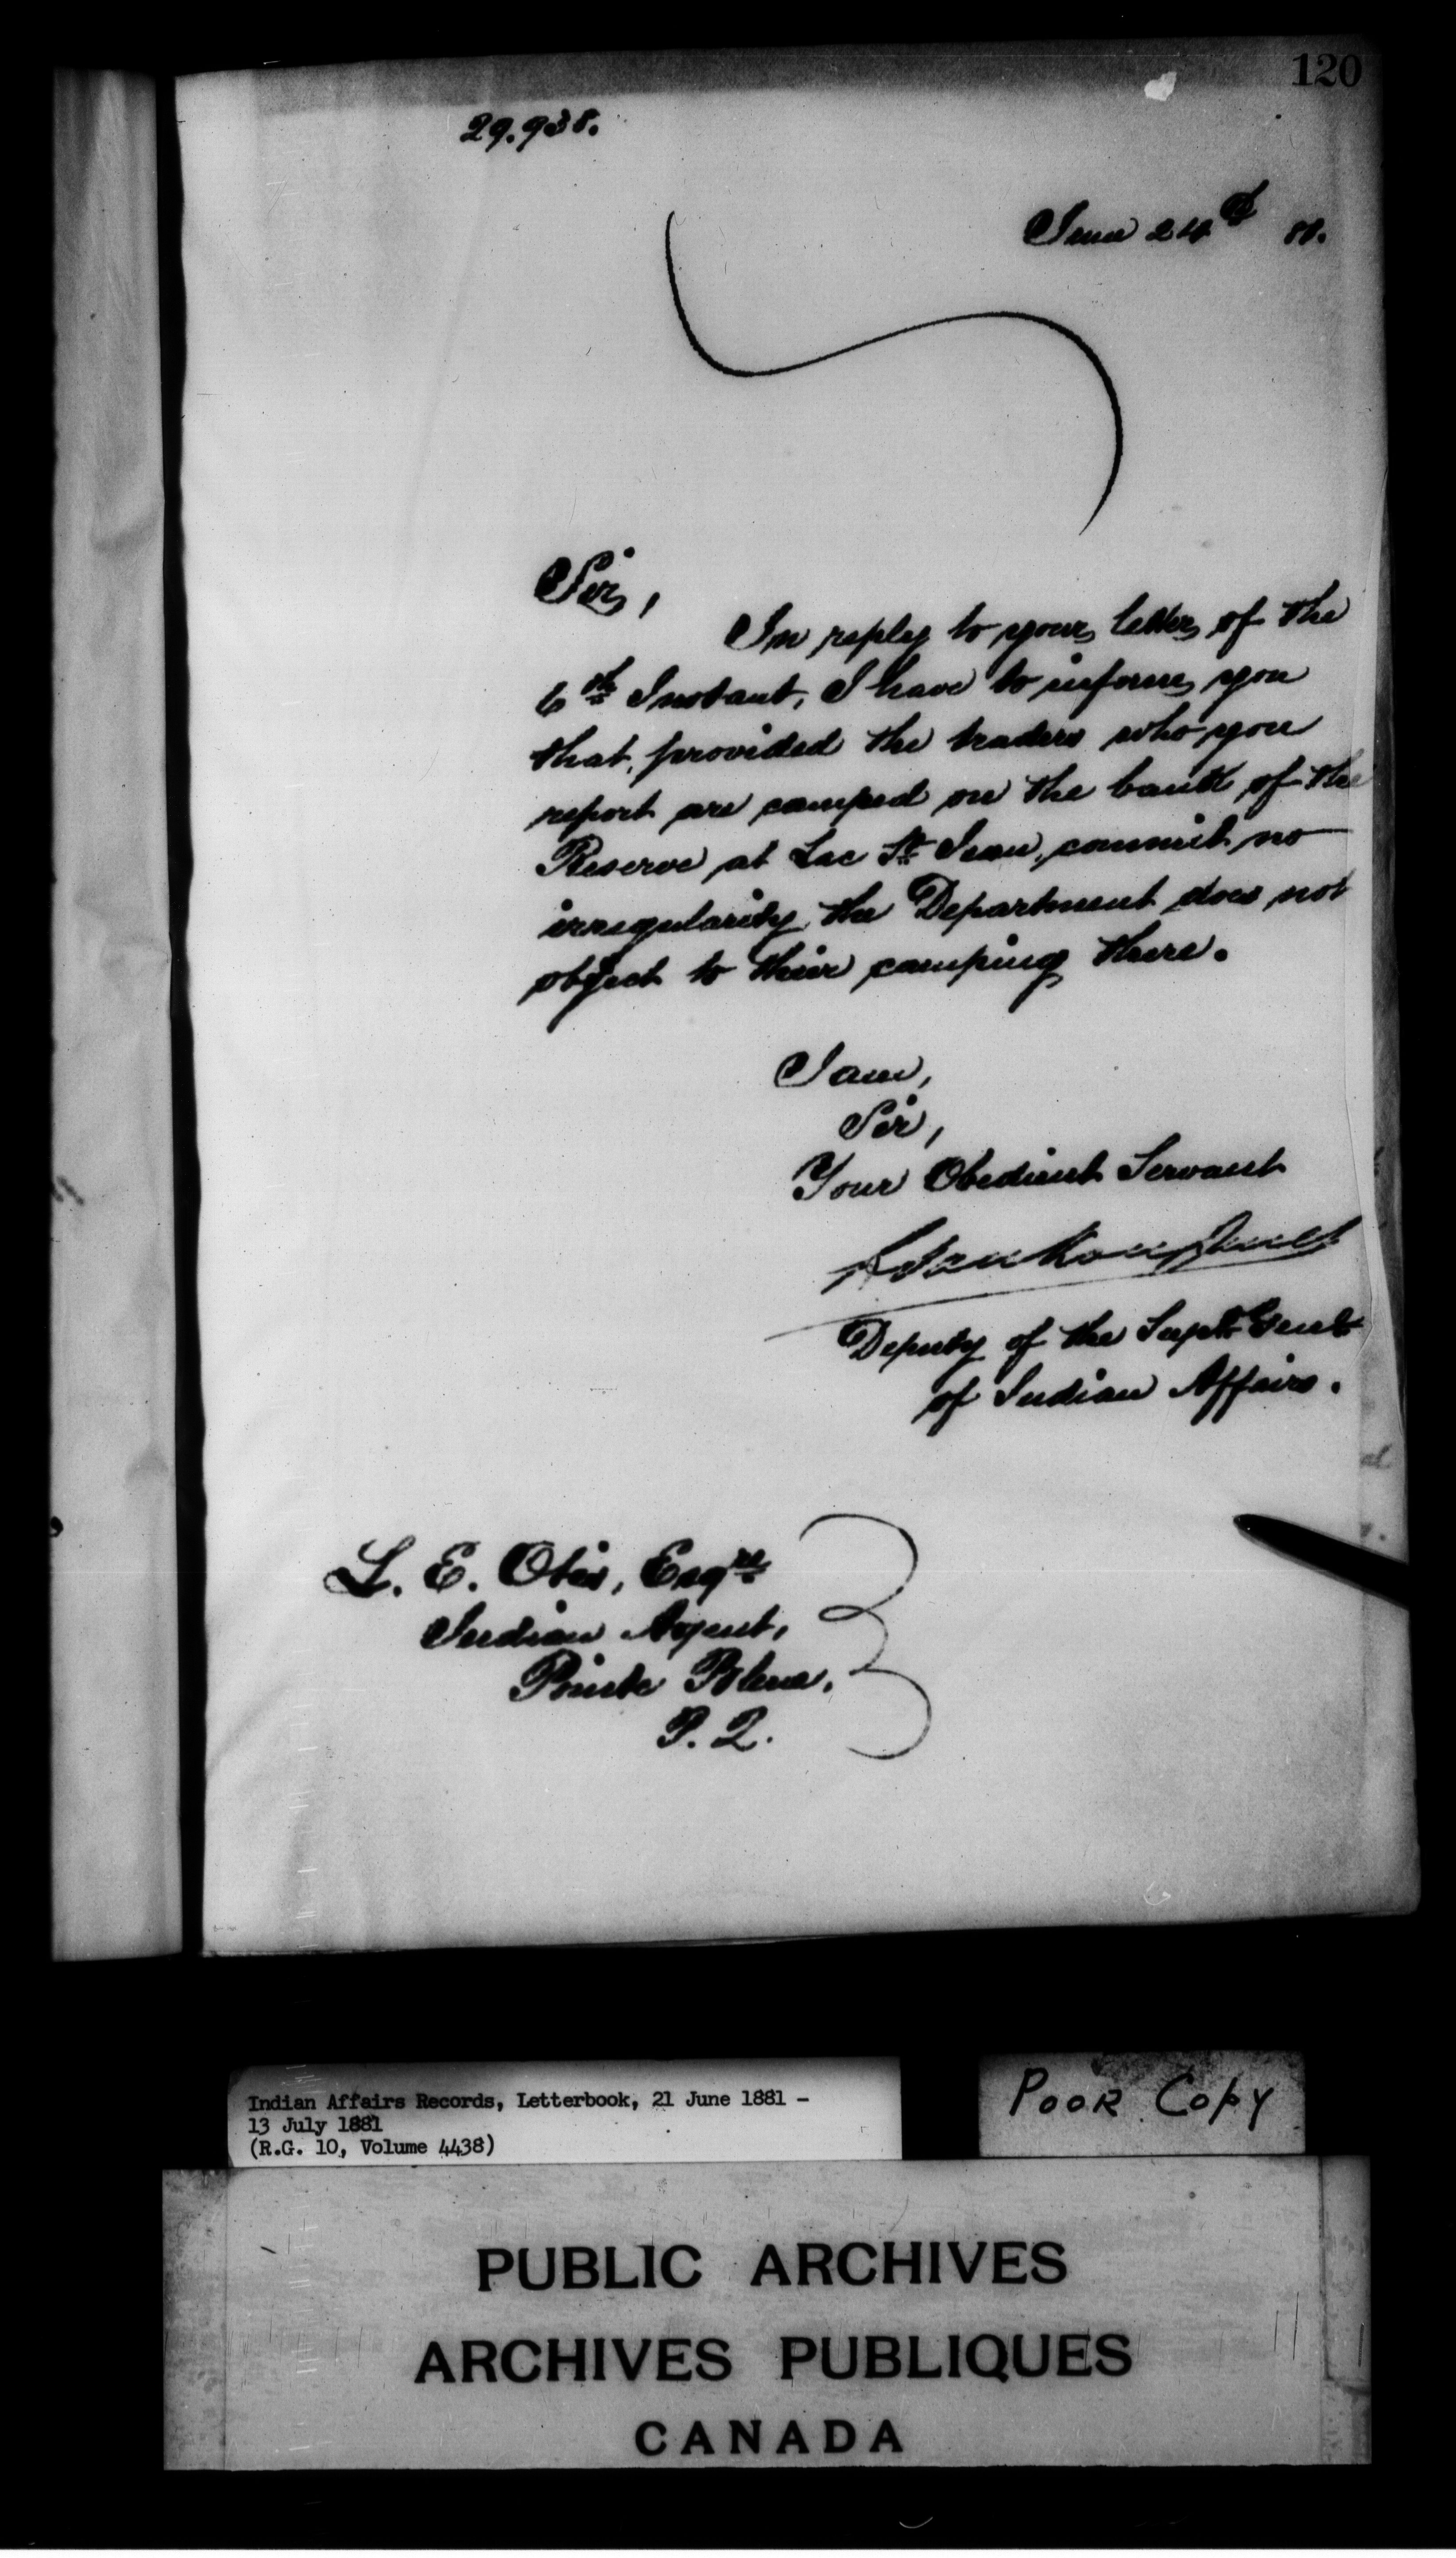 120
29.938.
June 24th 81.
Sir,
In reply to your letter of the
6th Instant, I have to inform you
that, provided the traders who you
report are camped on the bank of the
Reserve at Lac St Jean, commit no
irregularity the Department does not
object to their camping there.
I am,
Sir,
Your Obedient Servant
Deputy of the Supt Genl
of Indian Affairs.
L. E. Otis, Esqre
Indian Agent,
Pointe Bleue,
P. Q.
Indian Affairs Records, Letterbook, 21 June 1881 -
13 July 1881
(R.G. 10, Volume 4438)
POOR COPY
PUBLIC ARCHIVES
ARCHIVES PUBLIQUES
CANADA